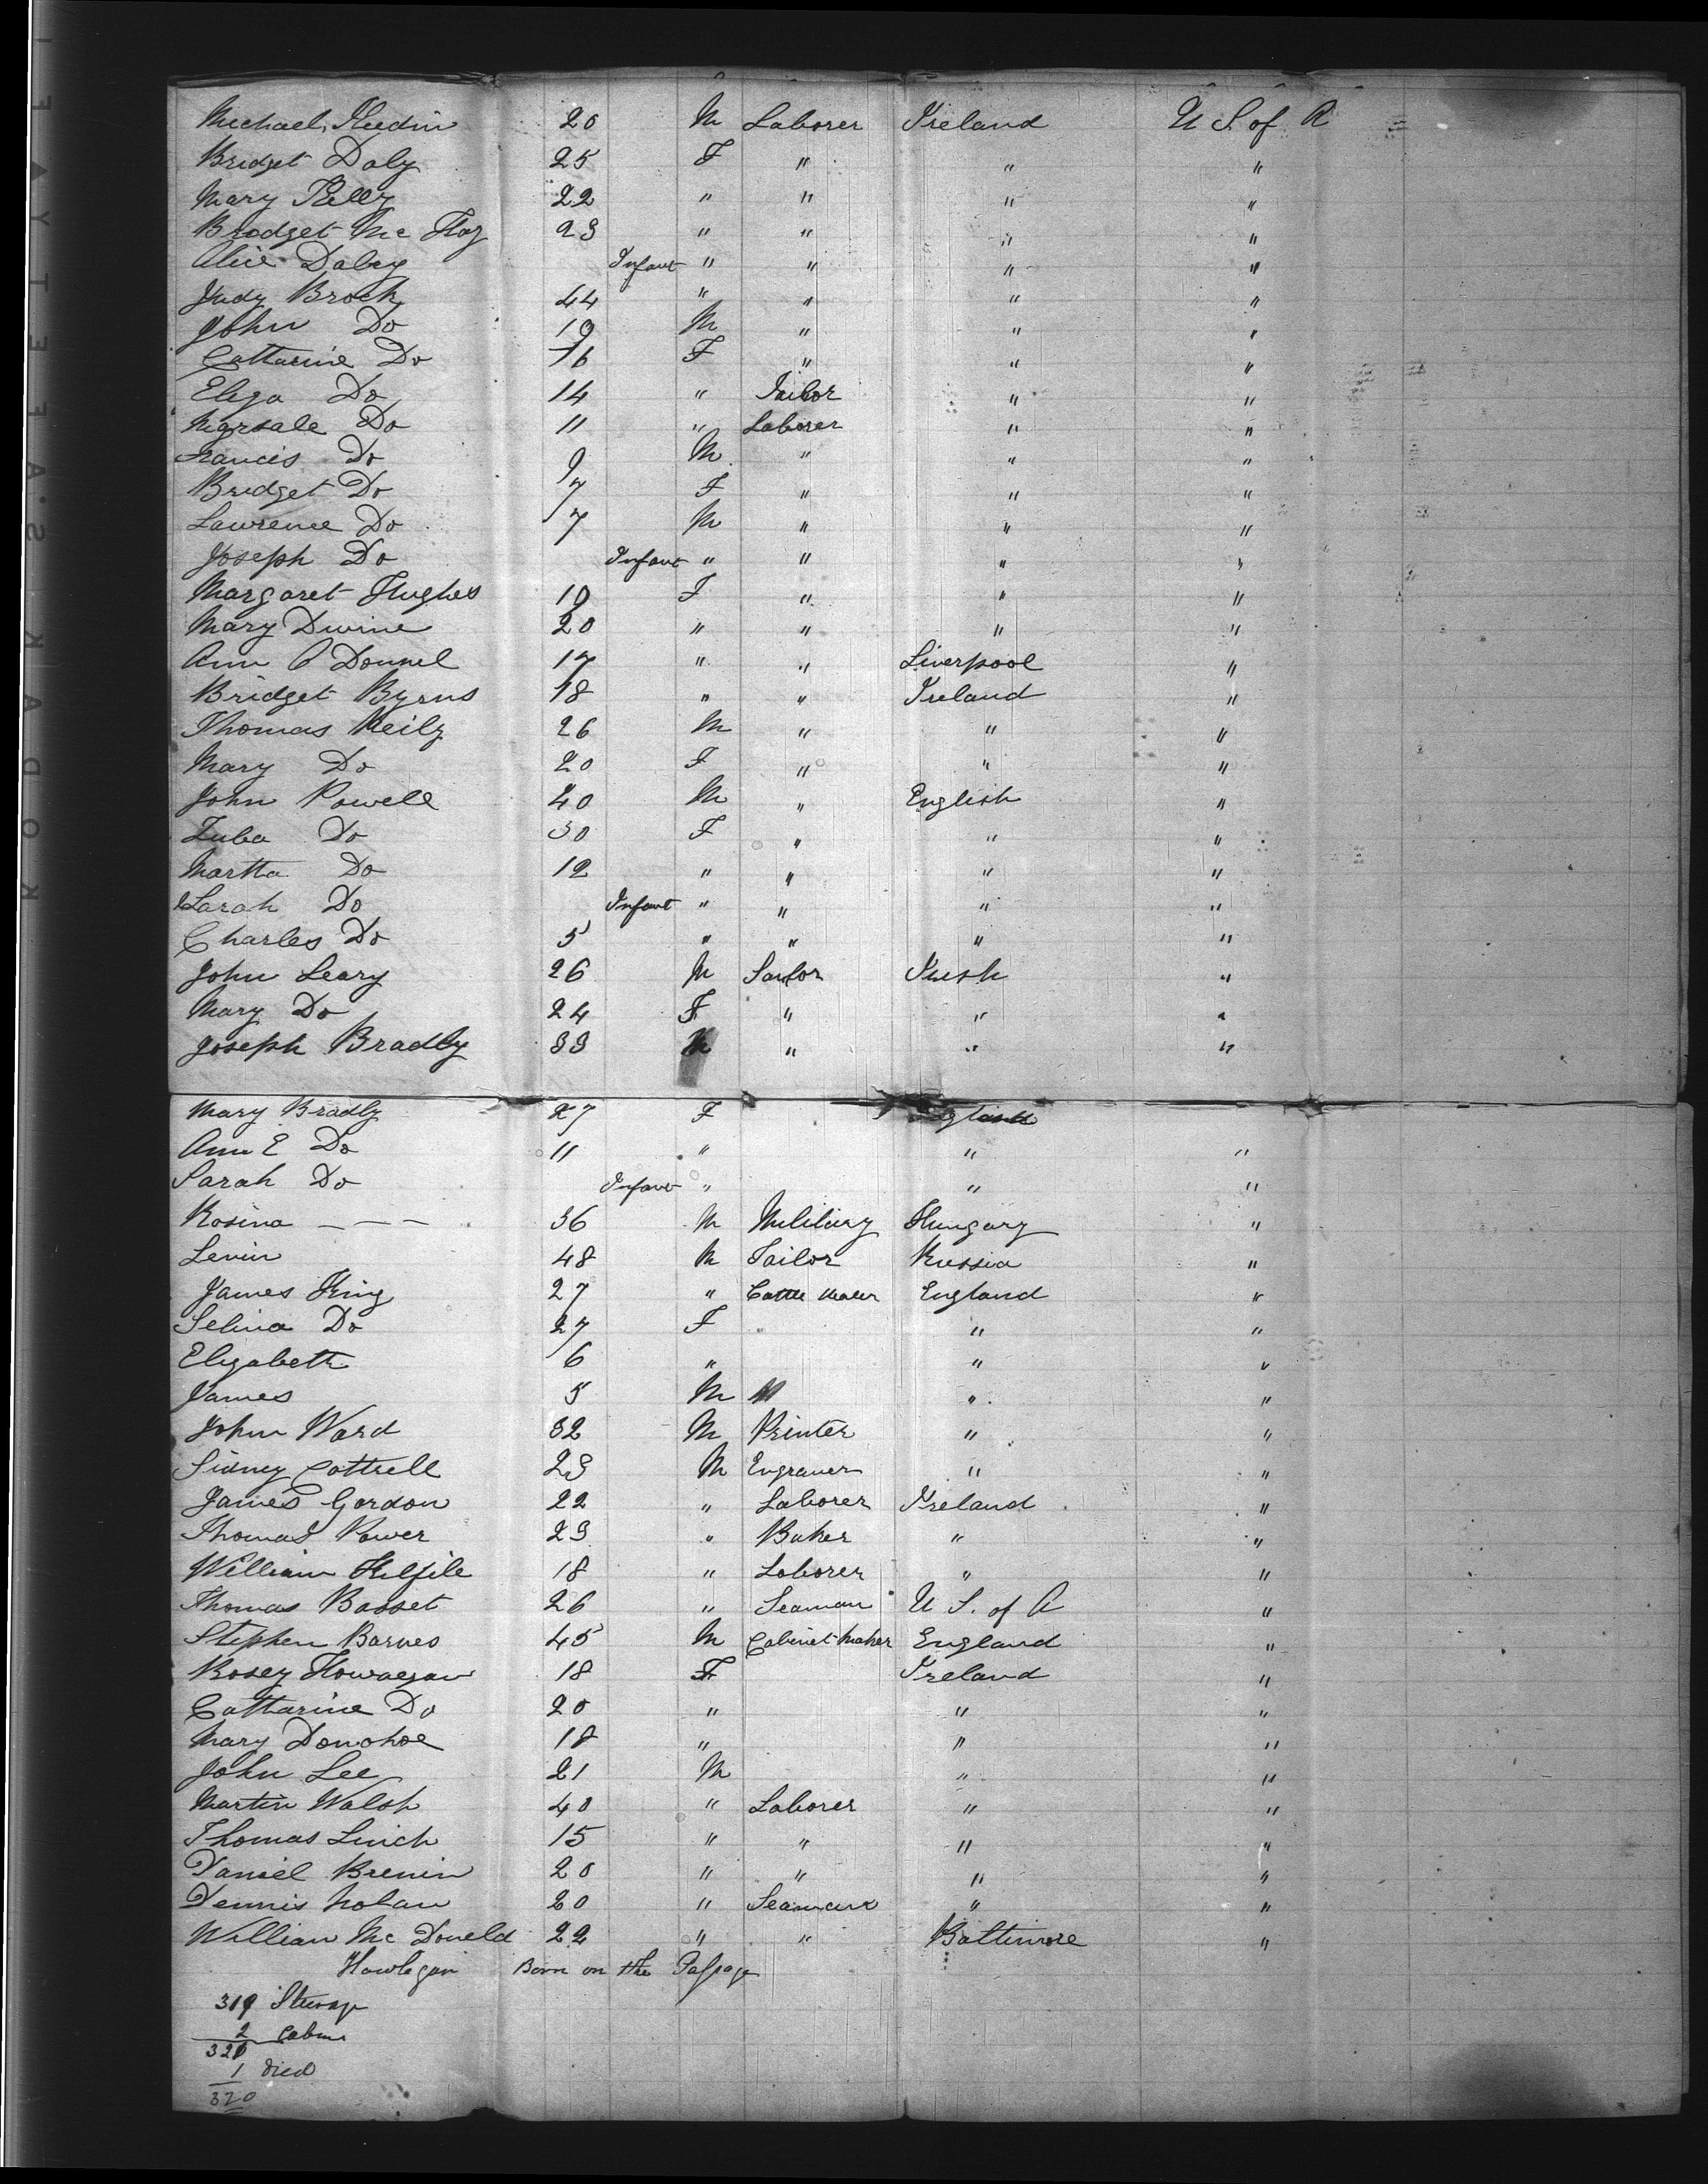 Michael 20 M Laborer Ireland U S. of A
Bridget Daly 25 F " " "
Mary Kelly 22 " " " "
Bridget Mc 23 " " " "
Alice Daley Infant " " " "
Judy Brock 44 " " " "
John Do 19 M " " "
Cattarine Do 16 F " " "
Eliza Do 14 " Tailor " "
Do 11 " Laborer " "
Francis Do 9 M " " "
Bridget Do 7 F " " "
Lawrence Do 7 M " " "
Joseph Do Infant " " " "
Margaret Hughes 19 F " " "
Mary Divine 20 " " " "
Ann O Donnel 17 " " Liverpool "
Bridget Byrns 18 " " Ireland "
Thomas Reily 26 M " " "
Mary Do 20 F " " "
John Powell 40 M " English "
Zuba Do 30 F " " "
Martha Do 12 " " " "
Sarah Do Infant " " " "
Charles Do 5 " " " "
John Leary 26 M Sailor Irish "
Mary Do 24 F " " "
Joseph Bradly 33 M " " "
Mary Bradly 27 F England
Ann E Do 11 " " "
Sarah Do Infant " " "
Rosina — — — 36 M Military Hungary "
Levin 48 M Tailor Russia "
James King 27 " Cattle dealer England "
Selina Do 27 F " "
Elizabeth 6 " " "
James 5 M " "
John Ward 32 M Printer " "
Sidney Cottrell 23 M Engraver " "
James Gordon 22 " Laborer Ireland "
Thomas Power 23 " Baker " "
William 18 " Laborer " "
Thomas Basset 26 " Seaman U S. of A "
Stephen Barnes 45 M Cabinet Maker England "
Rosey 18 F Ireland "
Cattarine Do 20 " " "
Mary Donohoe 18 " " "
John Lee 21 M " "
Martin Walsh 40 " Laborer " "
Thomas Linch 15 " " " "
Daniel Brenin 20 " " " "
Dennis Nolan 20 " Seaman " "
William Mc Doneld 22 " " Baltimore "
Born on the Passage
319 Steerage
2 Cabin
321
1 Died
320